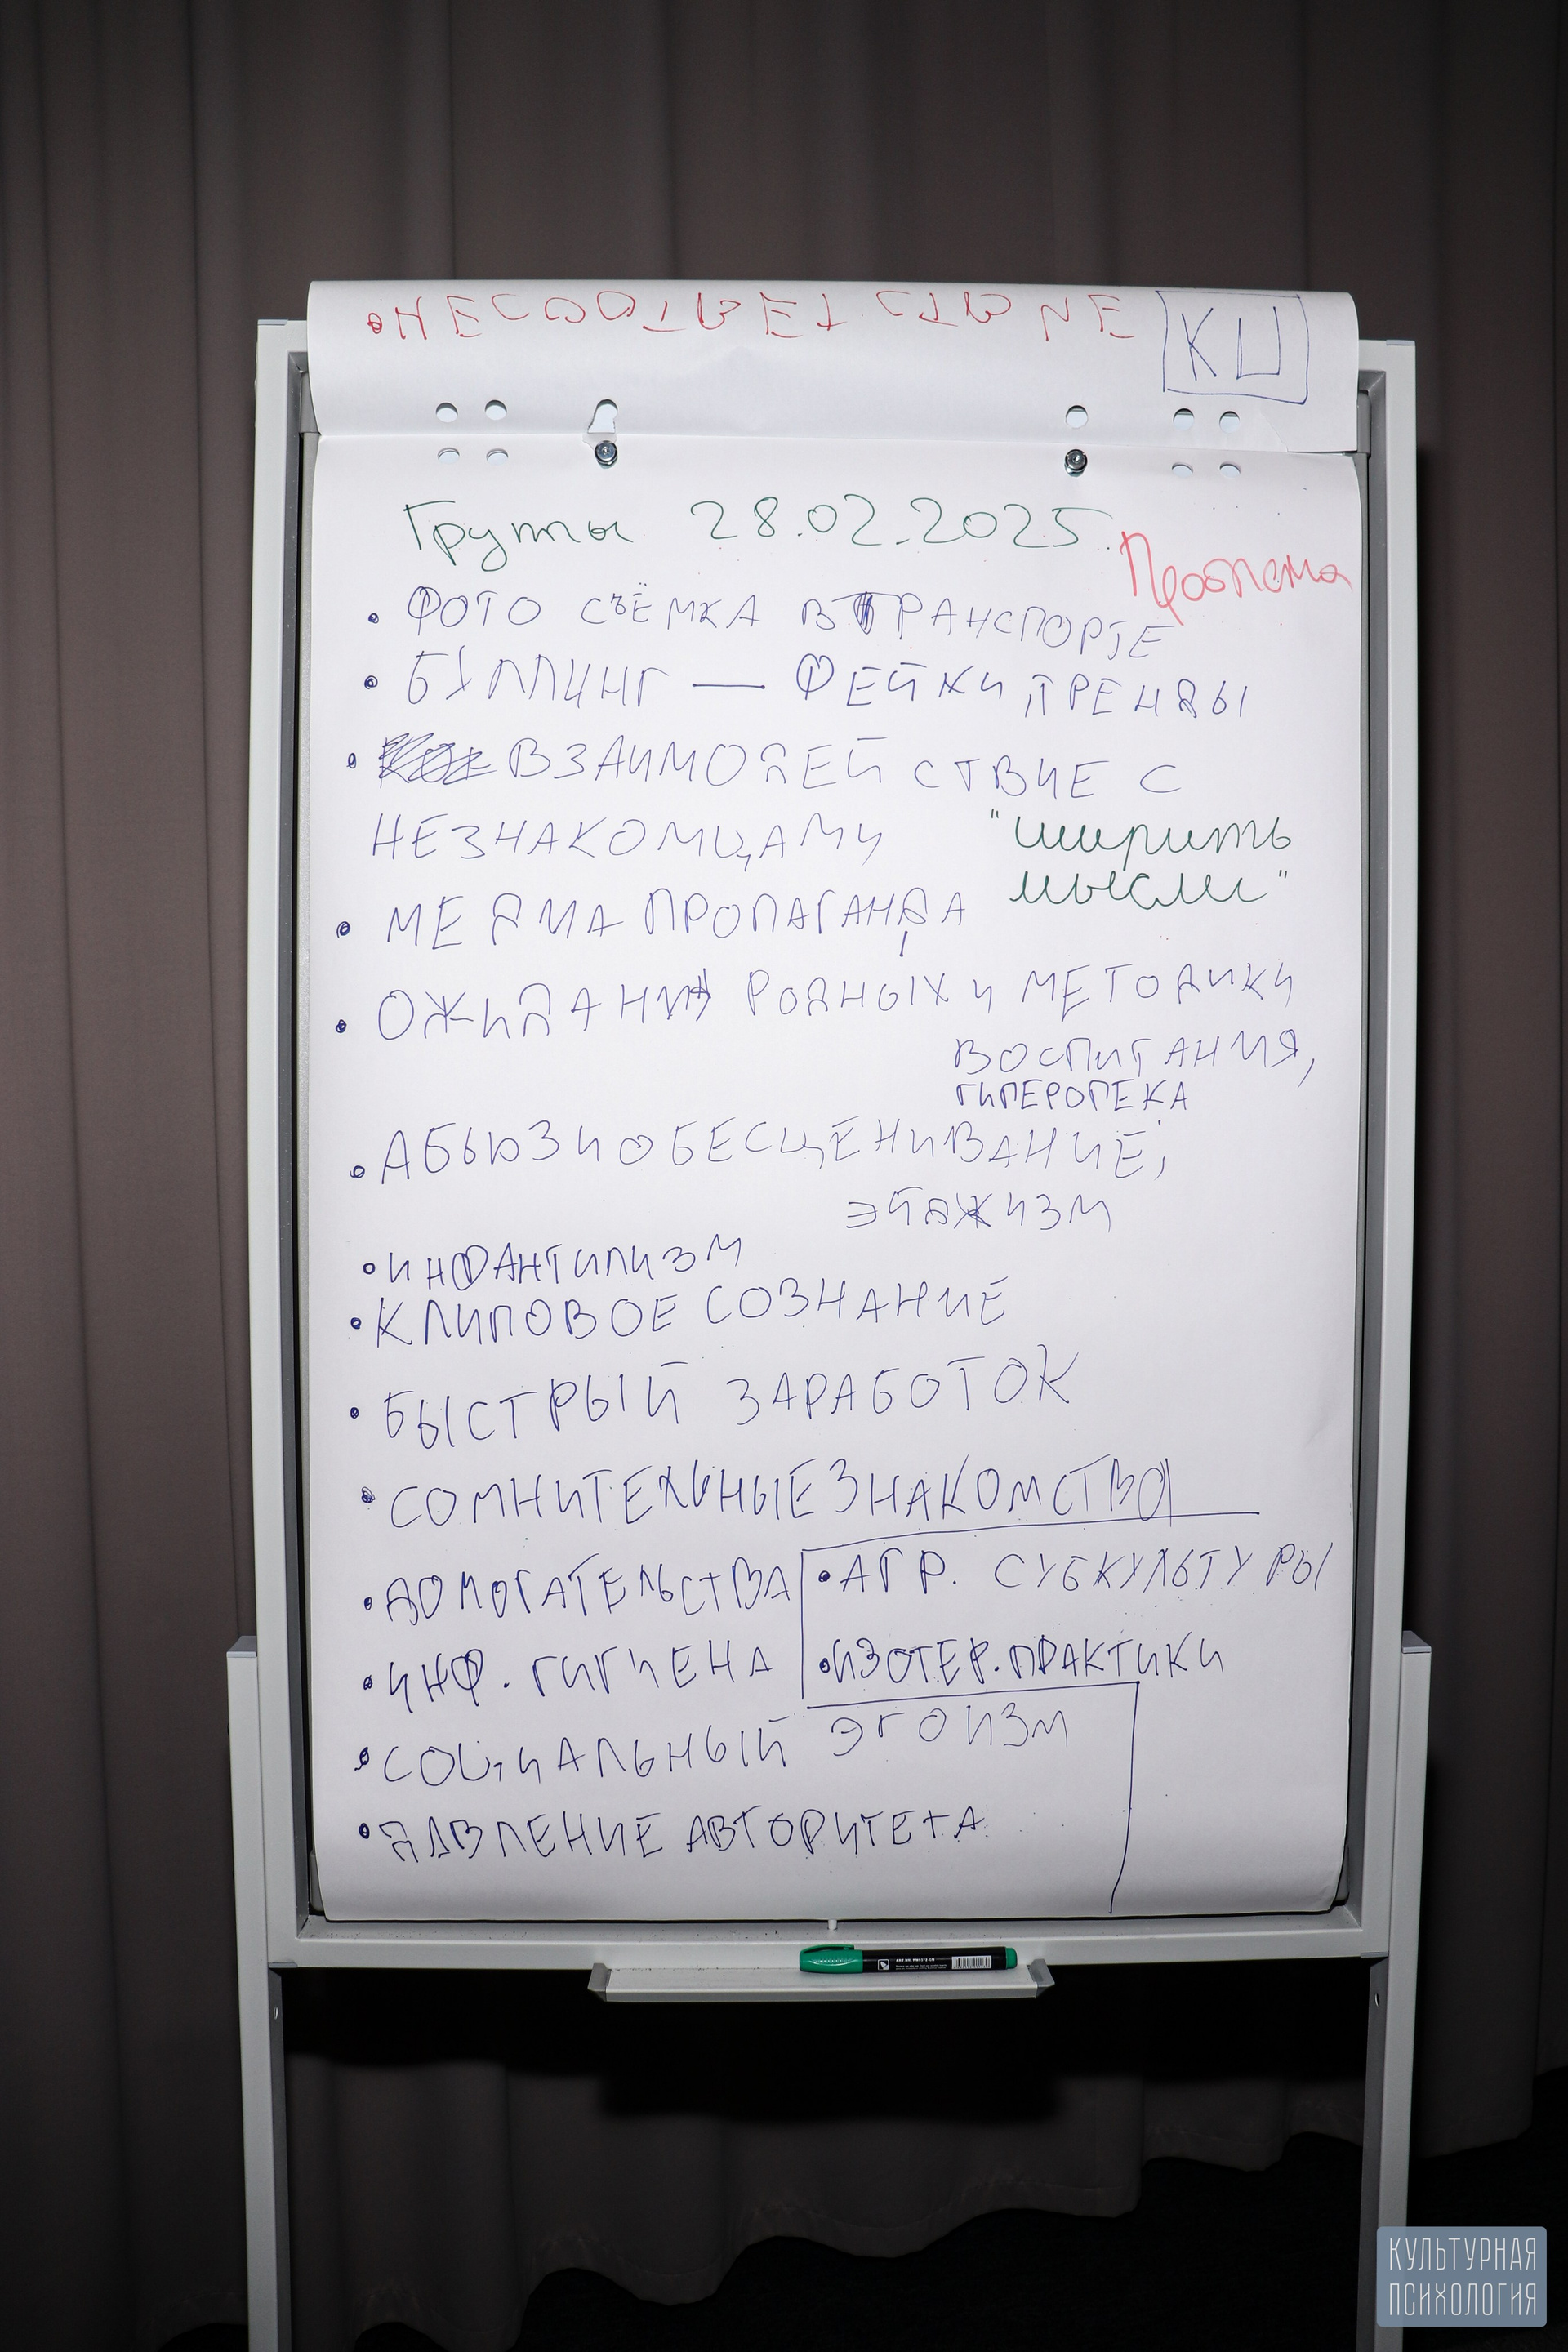 • НЕСООТВЕТСТВИЕ КЦ
Группы 28.02.2025
Проблема
• ФОТО СЪЁМКА В ТРАНСПОРТЕ
• БУЛЛИНГ — ФЕЙКИ, ТРЕНДЫ
• ВЗАИМОДЕЙСТВИЕ С
НЕЗНАКОМЦАМИ
"ширить
мысли"
• МЕДИА ПРОПАГАНДА
• ОЖИДАНИЯ РОДНЫХ И МЕТОДИКИ
ВОСПИТАНИЯ,
ГИПЕРОПЕКА
• АБЬЮЗ И ОБЕСЦЕНИВАНИЕ;
ЭЙДЖИЗМ
• ИНФАНТИЛИЗМ
• КЛИПОВОЕ СОЗНАНИЕ
• БЫСТРЫЙ ЗАРАБОТОК
• СОМНИТЕЛЬНЫЕ ЗНАКОМСТВА
• ДОМОГАТЕЛЬСТВА
• АГР. СУБКУЛЬТУРЫ
• ИНФ. ГИГИЕНА
• ИЗОТЕР. ПРАКТИКИ
• СОЦИАЛЬНЫЙ ЭГОИЗМ
• ДАВЛЕНИЕ АВТОРИТЕТА
КУЛЬТУРНАЯ
ПСИХОЛОГИЯ